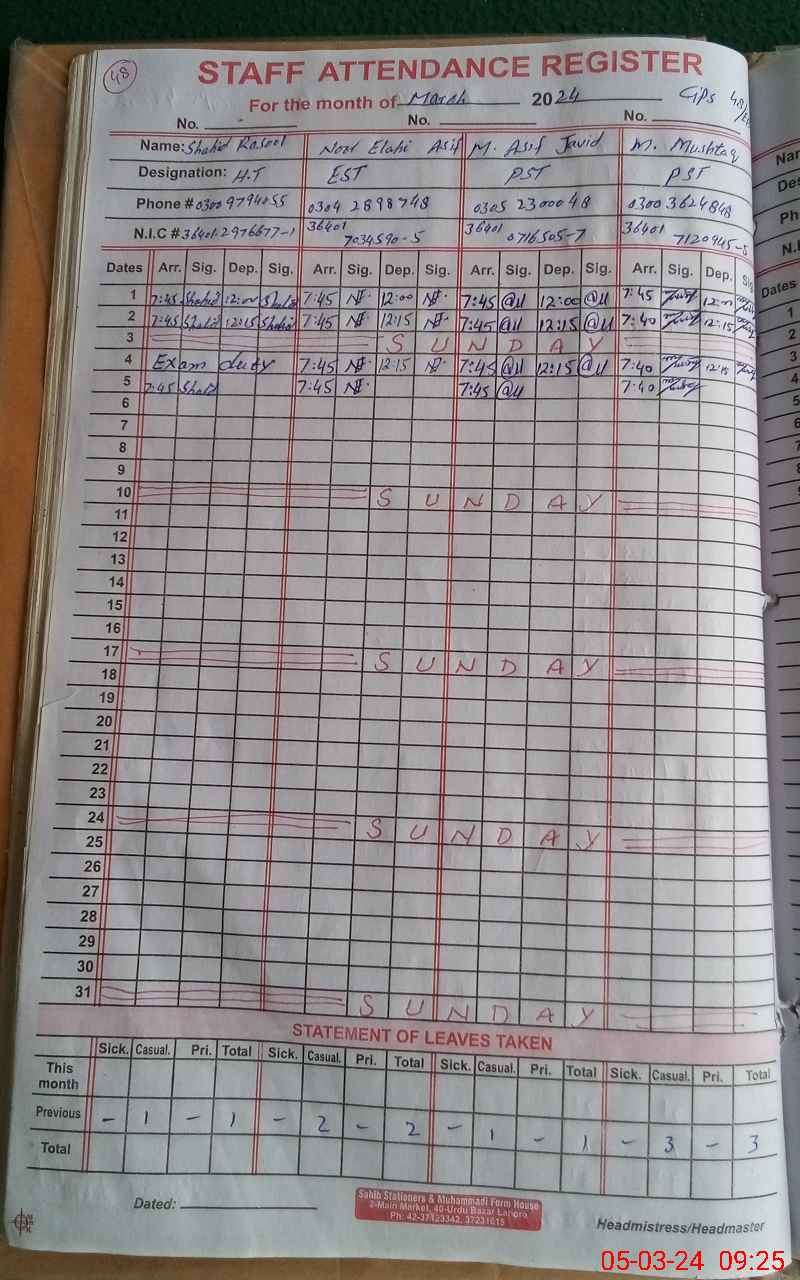 48
STAFF ATTENDANCE REGISTER
For the month of March 2024 GPS
No. No. No.
Name: Shahid Rasool Noor Elahi Asif M. Asif Javid M. Mushtaq
Designation: H.T EST PST PST
Phone # 0300 9794055 0304 2898748 0305 2300048 0300 3624848
N.I.C # 36401-2976677-1 36401 7034590-5 36401 0716505-7 36401 7120945-5
Dates Arr. Sig. Dep. Sig. Arr. Sig. Dep. Sig. Arr. Sig. Dep. Sig. Arr. Sig. Dep. Sig
1 7:45 Shahid 12:00 Shahid 7:45 12:00 7:45 12:00 7:45 12:00
2 7:45 Shahid 12:15 Shahid 7:45 12:15 7:45 12:15 7:40 12:15
3 SUNDAY
4 Exam duty 7:45 12:15 7:45 12:15 7:40 12:15
5 7:45 Shahid 7:45 7:45 7:40
6
7
8
9
10 SUNDAY
11
12
13
14
15
16
17 SUNDAY
18
19
20
21
22
23
24 SUNDAY
25
26
27
28
29
30
31 SUNDAY
STATEMENT OF LEAVES TAKEN
Sick. Casual. Pri. Total Sick. Casual. Pri. Total Sick. Casual. Pri. Total Sick. Casual. Pri. Total
This month
Previous - 1 - 1 - 2 - 2 - 1 - 1 - 3 - 3
Total
Dated:
Sahib Stationers & Muhammadi Form House
2-Main Market, 40-Urdu Bazar Lahore
Ph: 42-37123342, 37231615
Headmistress/Headmaster
05-03-24 09:25
Nar
Des
Ph
N.I.
Dates
1
2
3
4
5
6